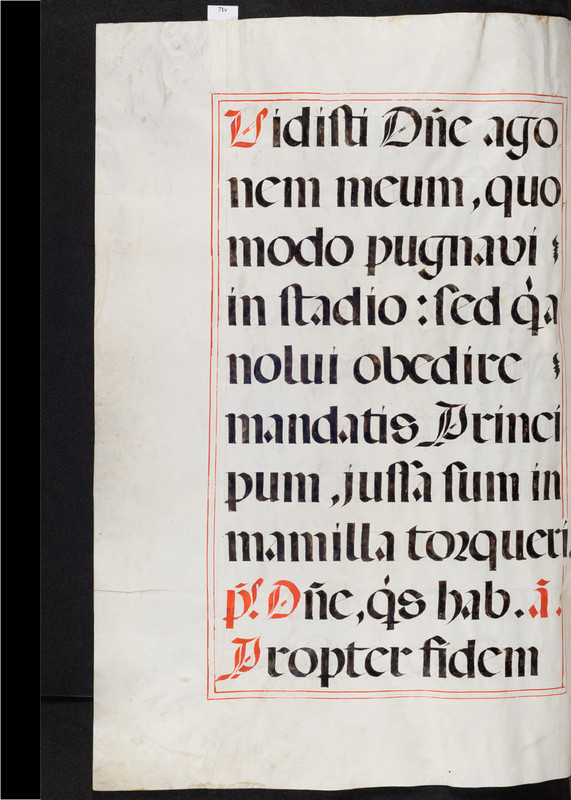 71v
Vidiſti Dñe ago
nem meum, quo
modo pugnavi
in ſtadio : ſed q̇a
nolui obedire
mandatis Princi
pum, juſſa ſum in
mamilla toꝛqueri.
p̃ſ. Dñe, q̇s hab. ã.
Propter fidem